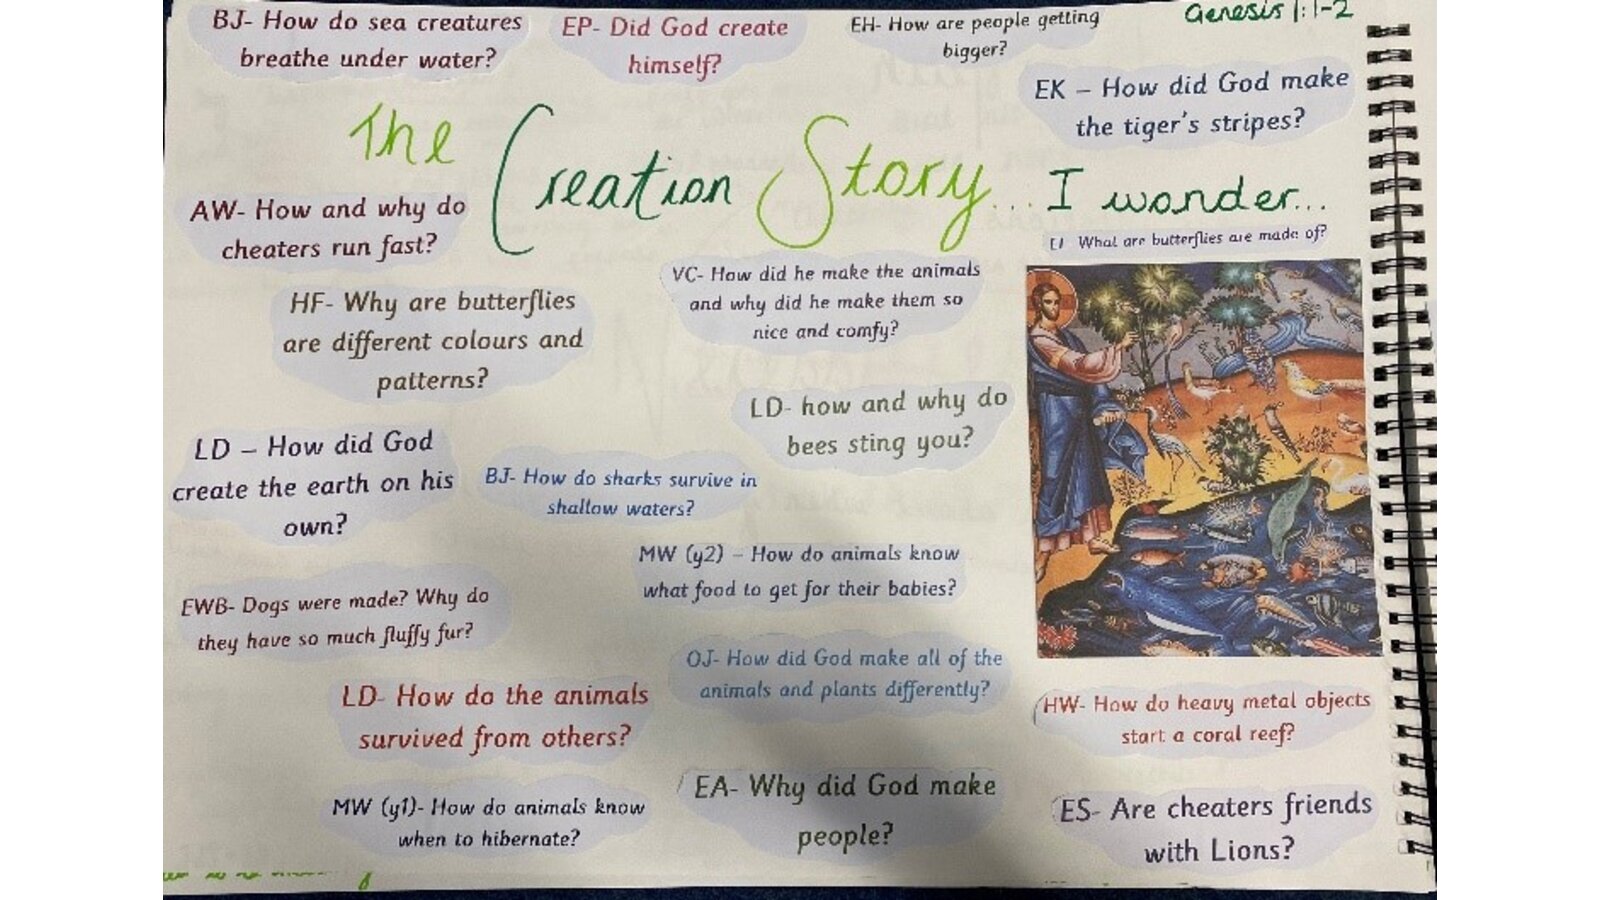 BJ- How do sea creatures
breathe under water?
EP- Did God create
himself?
EH- How are people getting
bigger?
Genesis 1:1-2
EK – How did God make
the tiger's stripes?
The Creation Story... I wonder...
AW- How and why do
cheaters run fast?
What are butterflies are made of?
HF- Why are butterflies
are different colours and
patterns?
VC- How did he make the animals
and why did he make them so
nice and comfy?
LD- how and why do
bees sting you?
LD – How did God
create the earth on his
own?
BJ- How do sharks survive in
shallow waters?
MW (y2) – How do animals know
what food to get for their babies?
EWB- Dogs were made? Why do
they have so much fluffy fur?
OJ- How did God make all of the
animals and plants differently?
LD- How do the animals
survived from others?
HW- How do heavy metal objects
start a coral reef?
MW (y1)- How do animals know
when to hibernate?
EA- Why did God make
people?
ES- Are cheaters friends
with Lions?